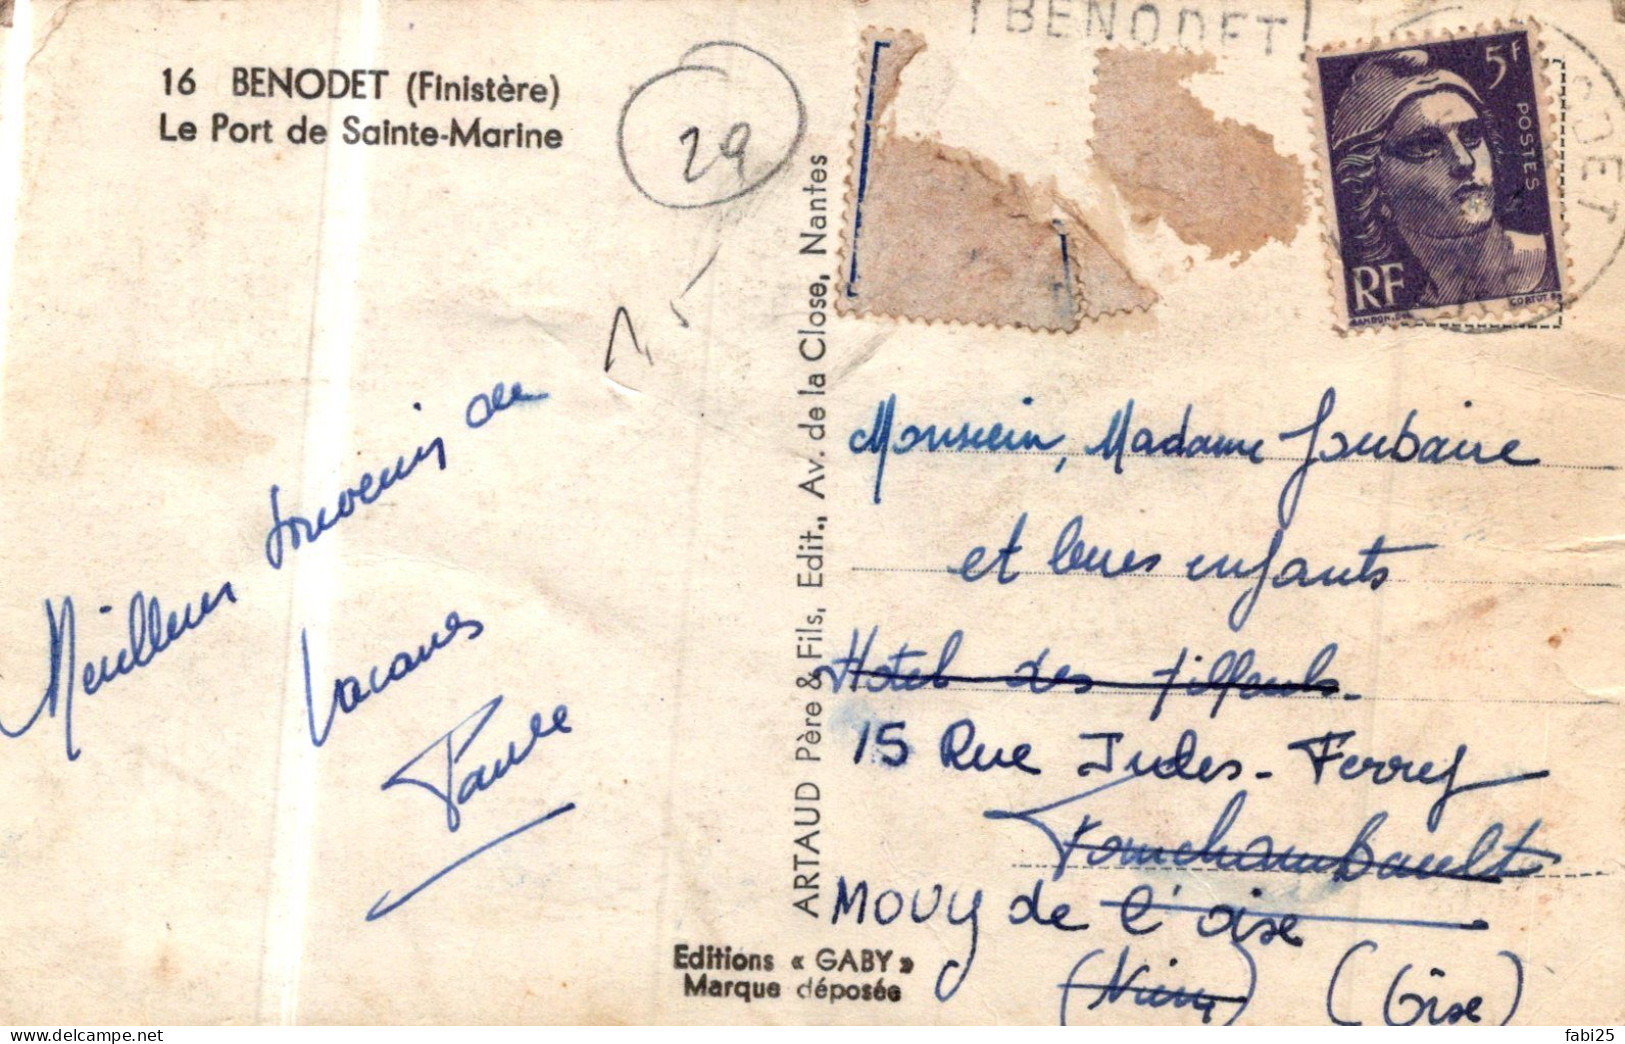 BENODET
16 BENODET (Finistère)
Le Port de Sainte-Marine
29
5F
POSTES
RF
ODET
Meilleurs souvenirs de
vacances
Paule
ARTAUD Père & Fils, Edit., Av. de la Close, Nantes
Editions « GABY »
Marque déposée
Monsieur, Madame Joubaire
et leurs enfants
Hotel des Tilleuls.
15 Rue Jules-Ferry
Fourchambault
MOUY de l'oise
(Nièvre) (Oise)
fabi25